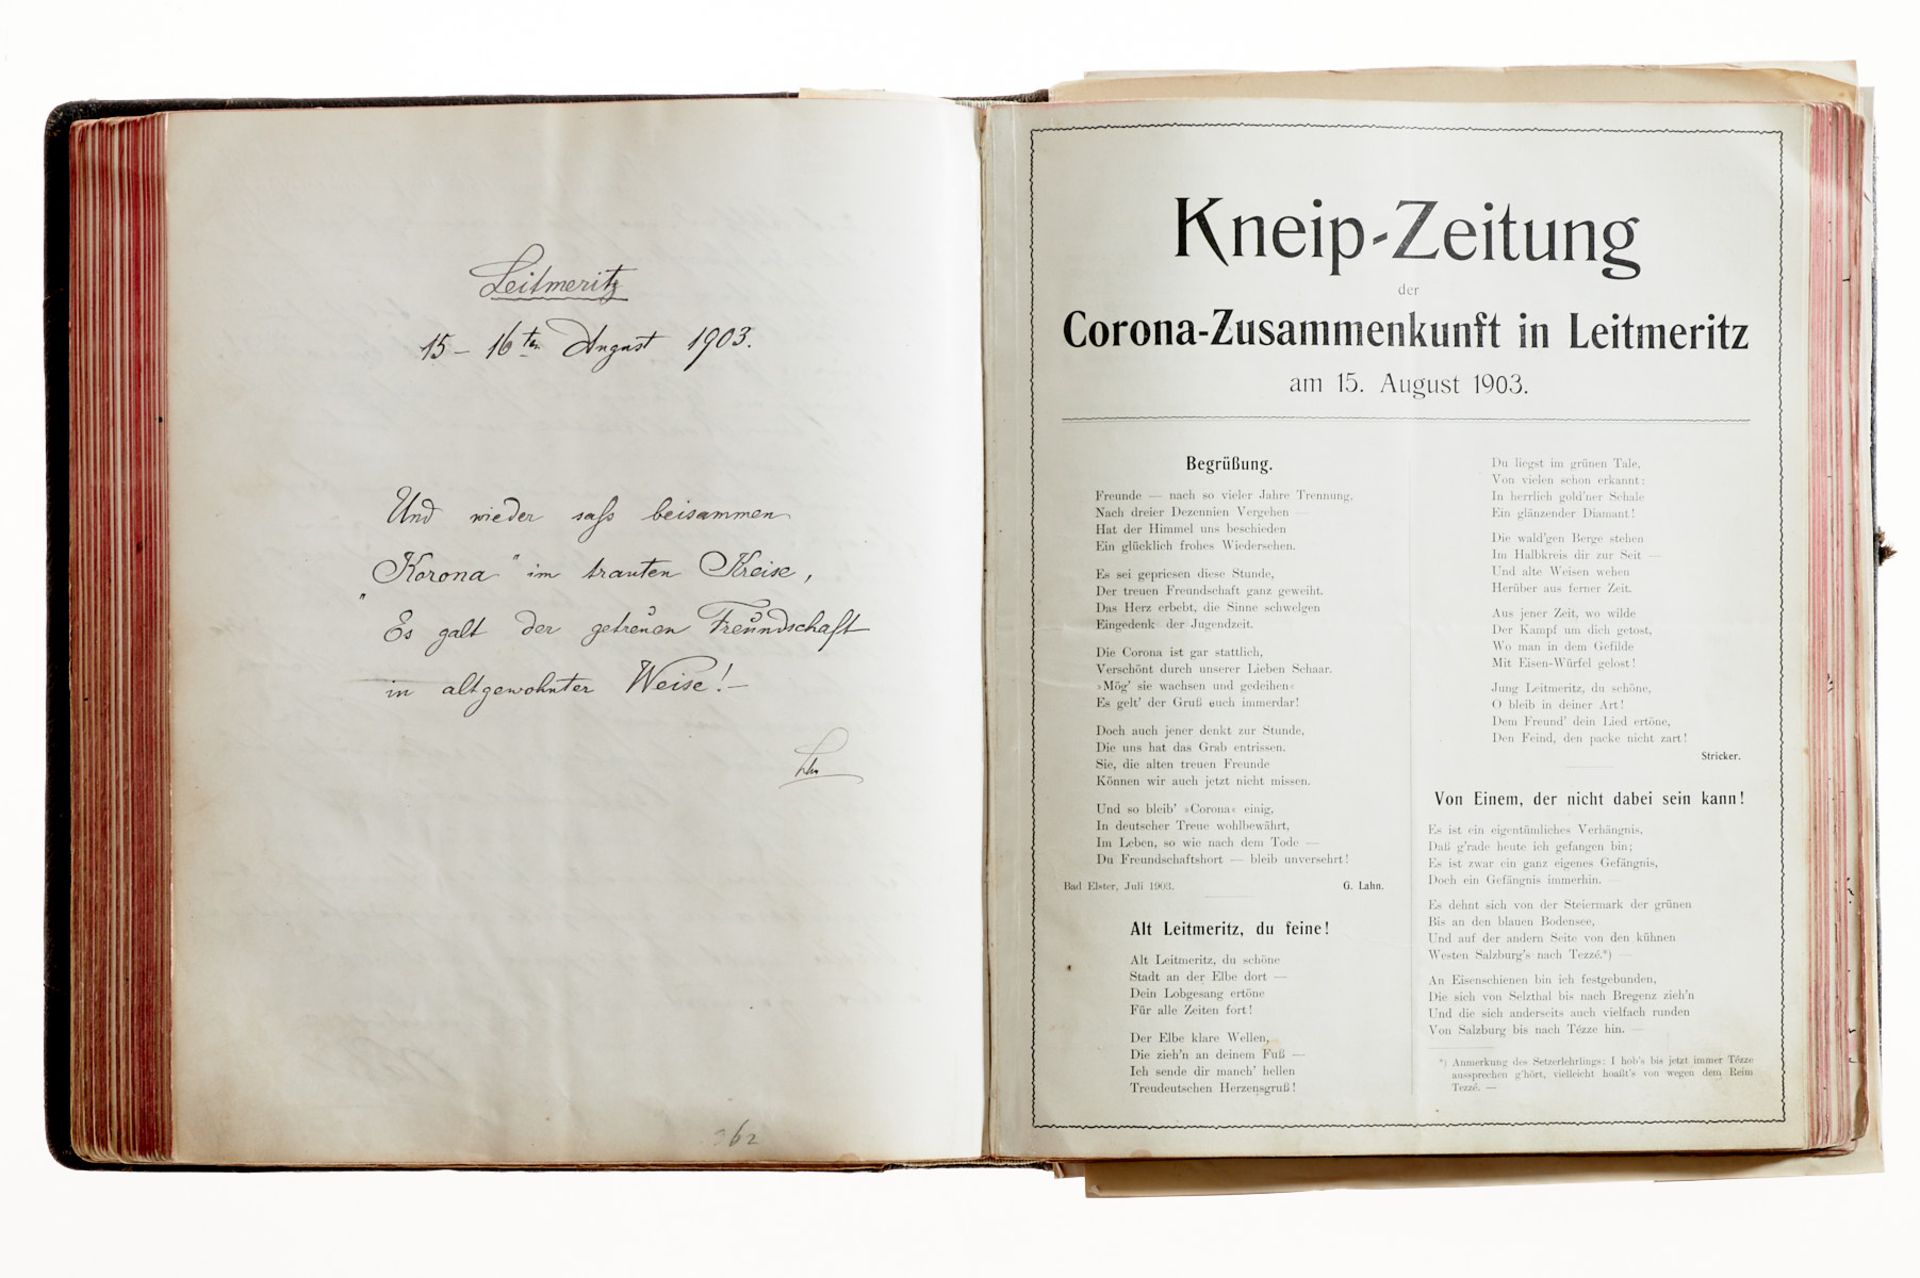 Leitmeritz
15 – 16ten August 1903.
Und wieder saß beisammen
„Korona" im trauten Kreise,
Es galt der getreuen Freundschaft
in altgewohnter Weise! –
362
Kneip-Zeitung
der
Corona-Zusammenkunft in Leitmeritz
am 15. August 1903.
Begrüßung.
Freunde — nach so vieler Jahre Trennung,
Nach dreier Dezennien Vergehen —
Hat der Himmel uns beschieden
Ein glücklich frohes Wiedersehen.
Es sei gepriesen diese Stunde,
Der treuen Freundschaft ganz geweiht.
Das Herz erbebt, die Sinne schwelgen
Eingedenk der Jugendzeit.
Die Corona ist gar stattlich,
Verschönt durch unserer Lieben Schaar.
»Mög' sie wachsen und gedeihen«
Es gelt' der Gruß euch immerdar!
Doch auch jener denkt zur Stunde,
Die uns hat das Grab entrissen.
Sie, die alten treuen Freunde
Können wir auch jetzt nicht missen.
Und so bleib' »Corona« einig,
In deutscher Treue wohlbewährt,
Im Leben, so wie nach dem Tode —
Du Freundschaftshort — bleib unversehrt!
Bad Elster, Juli 1903. G. Lahn.
Alt Leitmeritz, du feine!
Alt Leitmeritz, du schöne
Stadt an der Elbe dort —
Dein Lobgesang ertöne
Für alle Zeiten fort!
Der Elbe klare Wellen,
Die zieh'n an deinem Fuß —
Ich sende dir manch' hellen
Treudeutschen Herzensgruß!
Du liegst im grünen Tale,
Von vielen schon erkannt:
In herrlich gold'ner Schale
Ein glänzender Diamant!
Die wald'gen Berge stehen
Im Halbkreis dir zur Seit —
Und alte Weisen wehen
Herüber aus ferner Zeit.
Aus jener Zeit, wo wilde
Der Kampf um dich getost,
Wo man in dem Gefilde
Mit Eisen-Würfel gelost!
Jung Leitmeritz, du schöne,
O bleib in deiner Art!
Dem Freund' dein Lied ertöne,
Den Feind, den packe nicht zart!
Stricker.
Von Einem, der nicht dabei sein kann!
Es ist ein eigentümliches Verhängnis,
Daß g'rade heute ich gefangen bin;
Es ist zwar ein ganz eigenes Gefängnis,
Doch ein Gefängnis immerhin. —
Es dehnt sich von der Steiermark der grünen
Bis an den blauen Bodensee,
Und auf der andern Seite von den kühnen
Westen Salzburg's nach Tezzé.*) —
An Eisenschienen bin ich festgebunden,
Die sich von Selzthal bis nach Bregenz zieh'n
Und die sich anderseits auch vielfach runden
Von Salzburg bis nach Tézze hin. —
*) Anmerkung des Setzerlehrlings: I hob's bis jetzt immer Tézze
aussprechen g'hört, vielleicht hoaßt's von wegen dem Reim
Tezzé. —